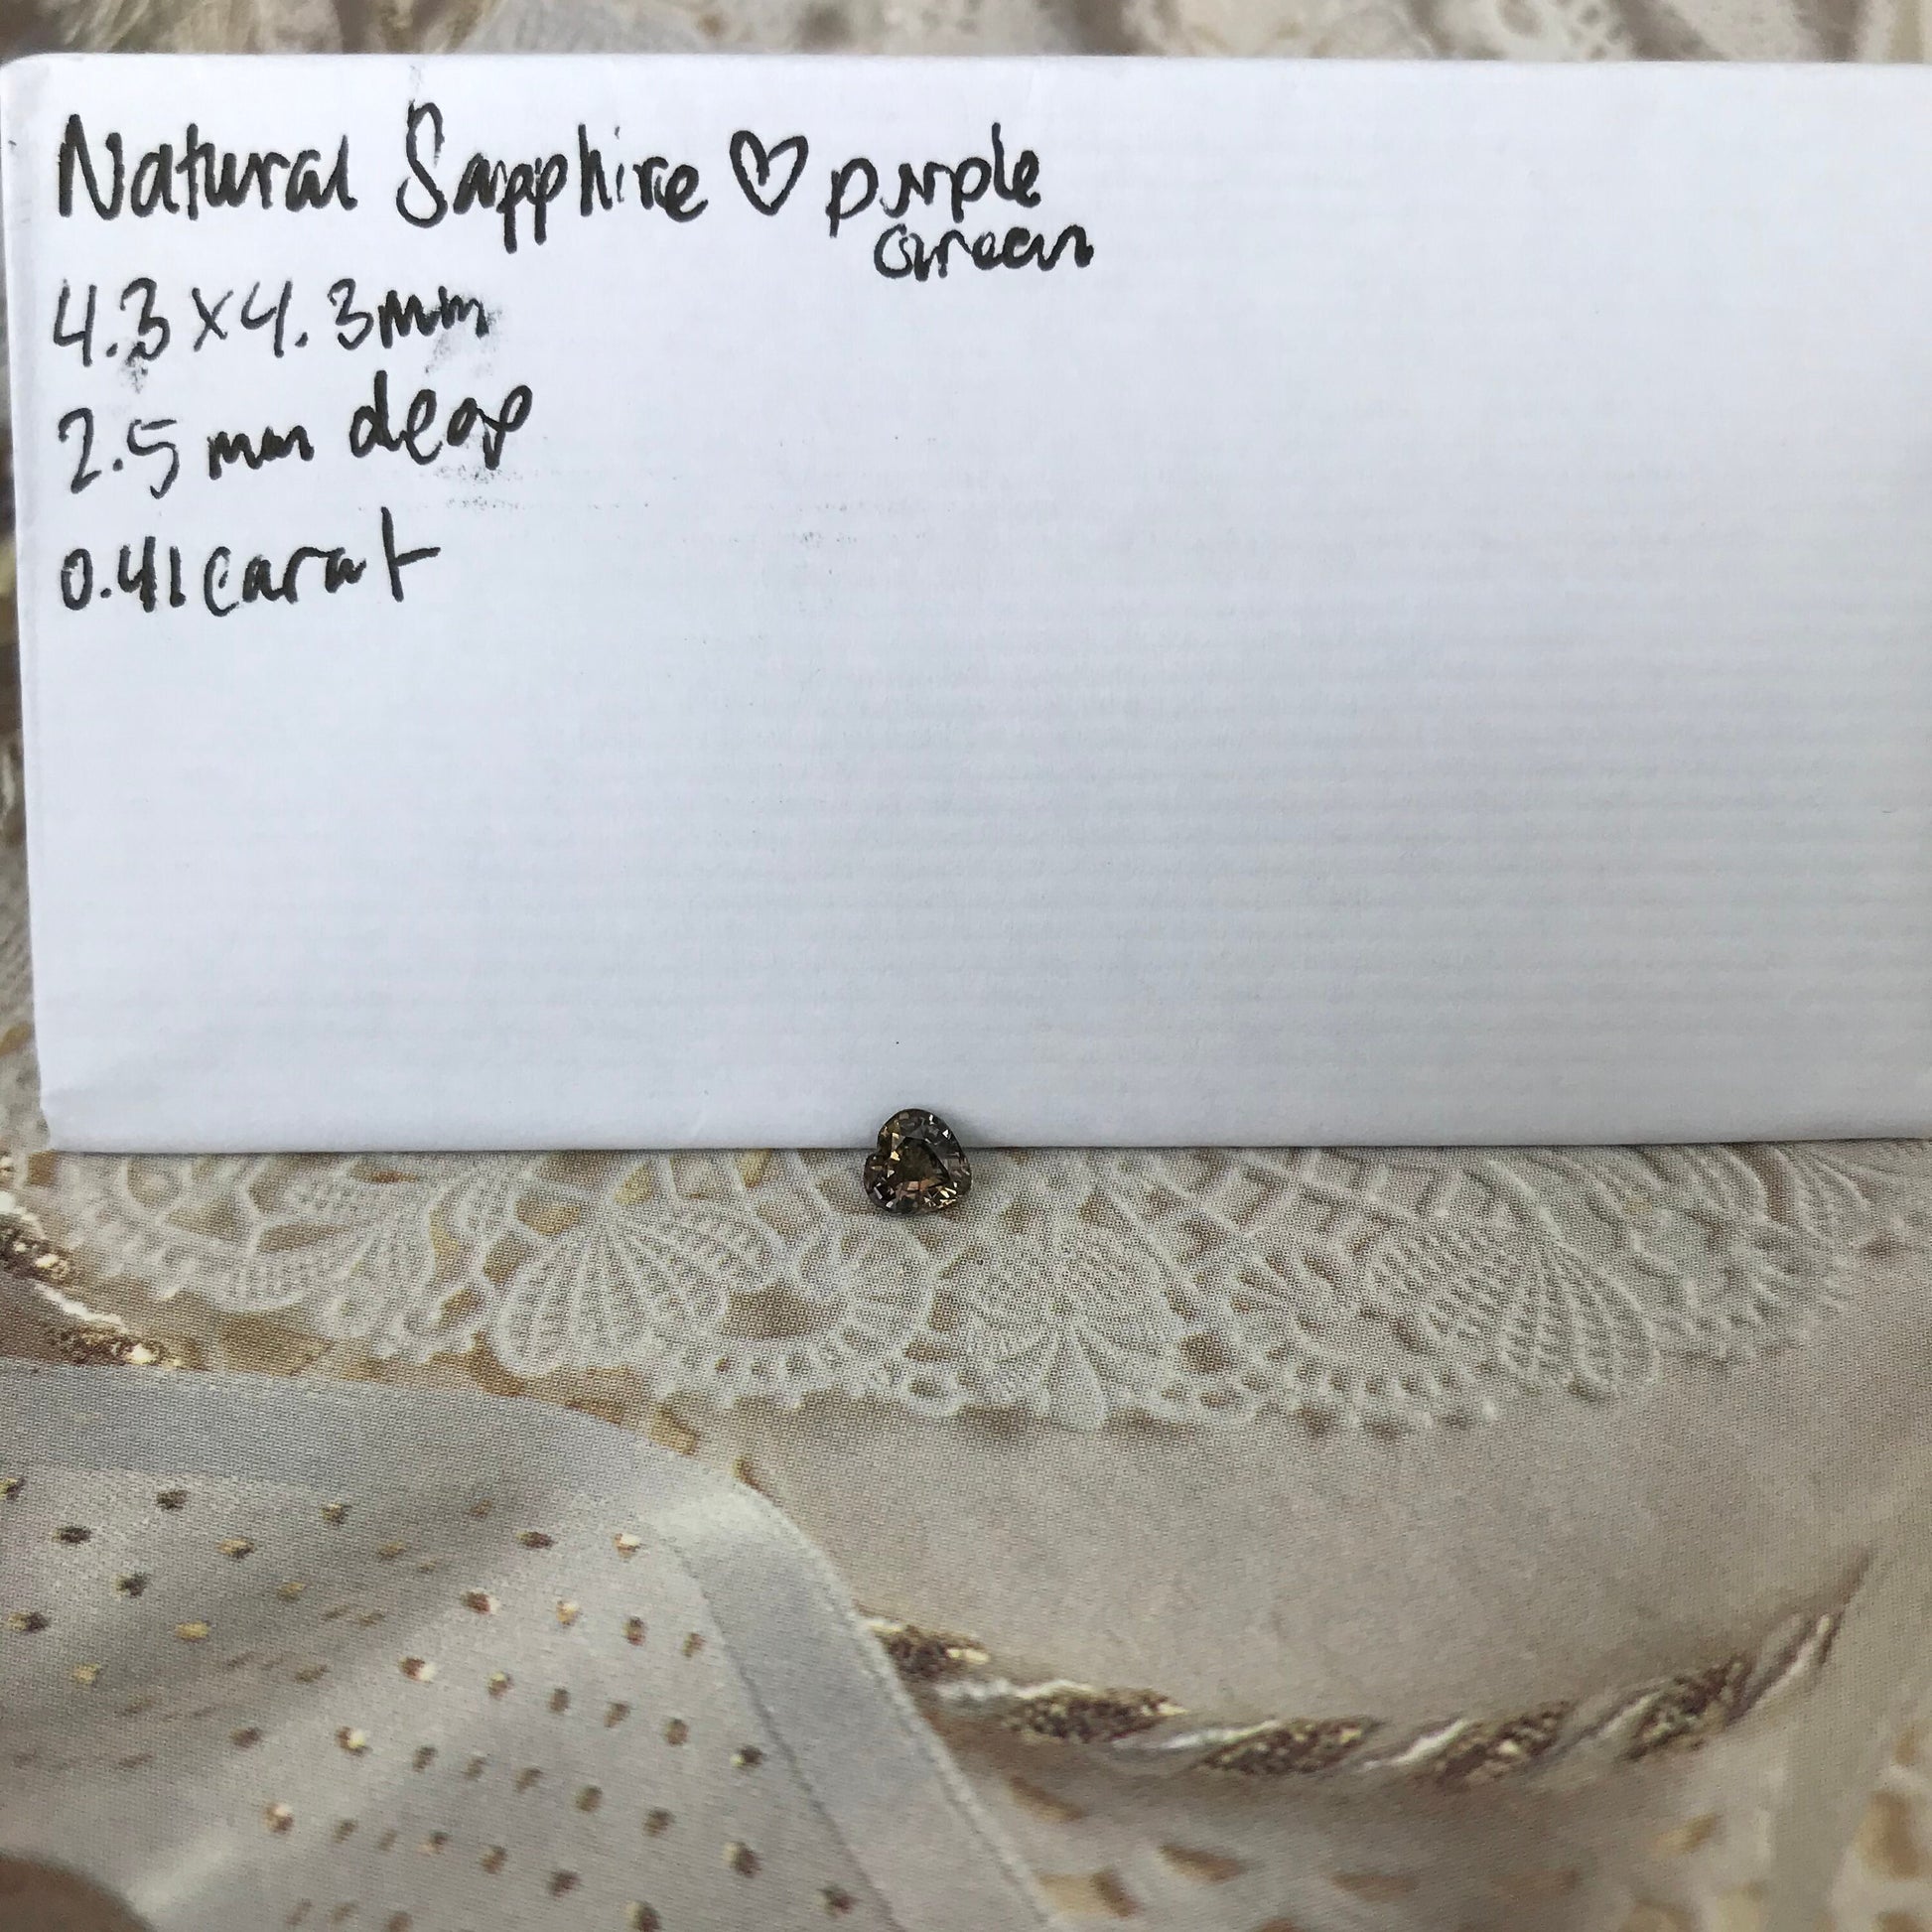 Natural Sapphire ♡ purple
Green
4.3x4.3mm
2.5mm deep
0.41carat